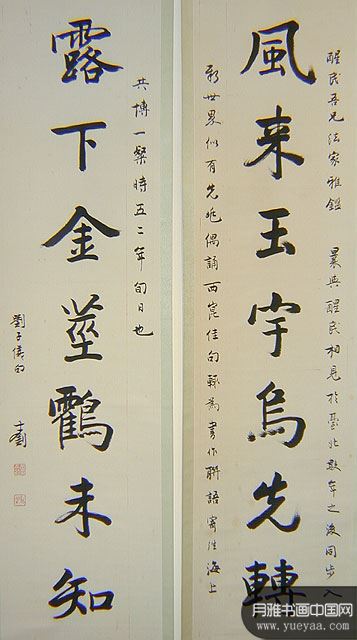 醒民吾兄法家雅鑑 曩與醒民相見於臺北數年之後同步入
風来玉宇烏先轉
新世界似有先兆偶誦西崑佳句輒為書作聯語寄往海上
共博一粲時五二年旬日也
露下金莖鸖未知
月雅书画中国网
www.yueyaa.com